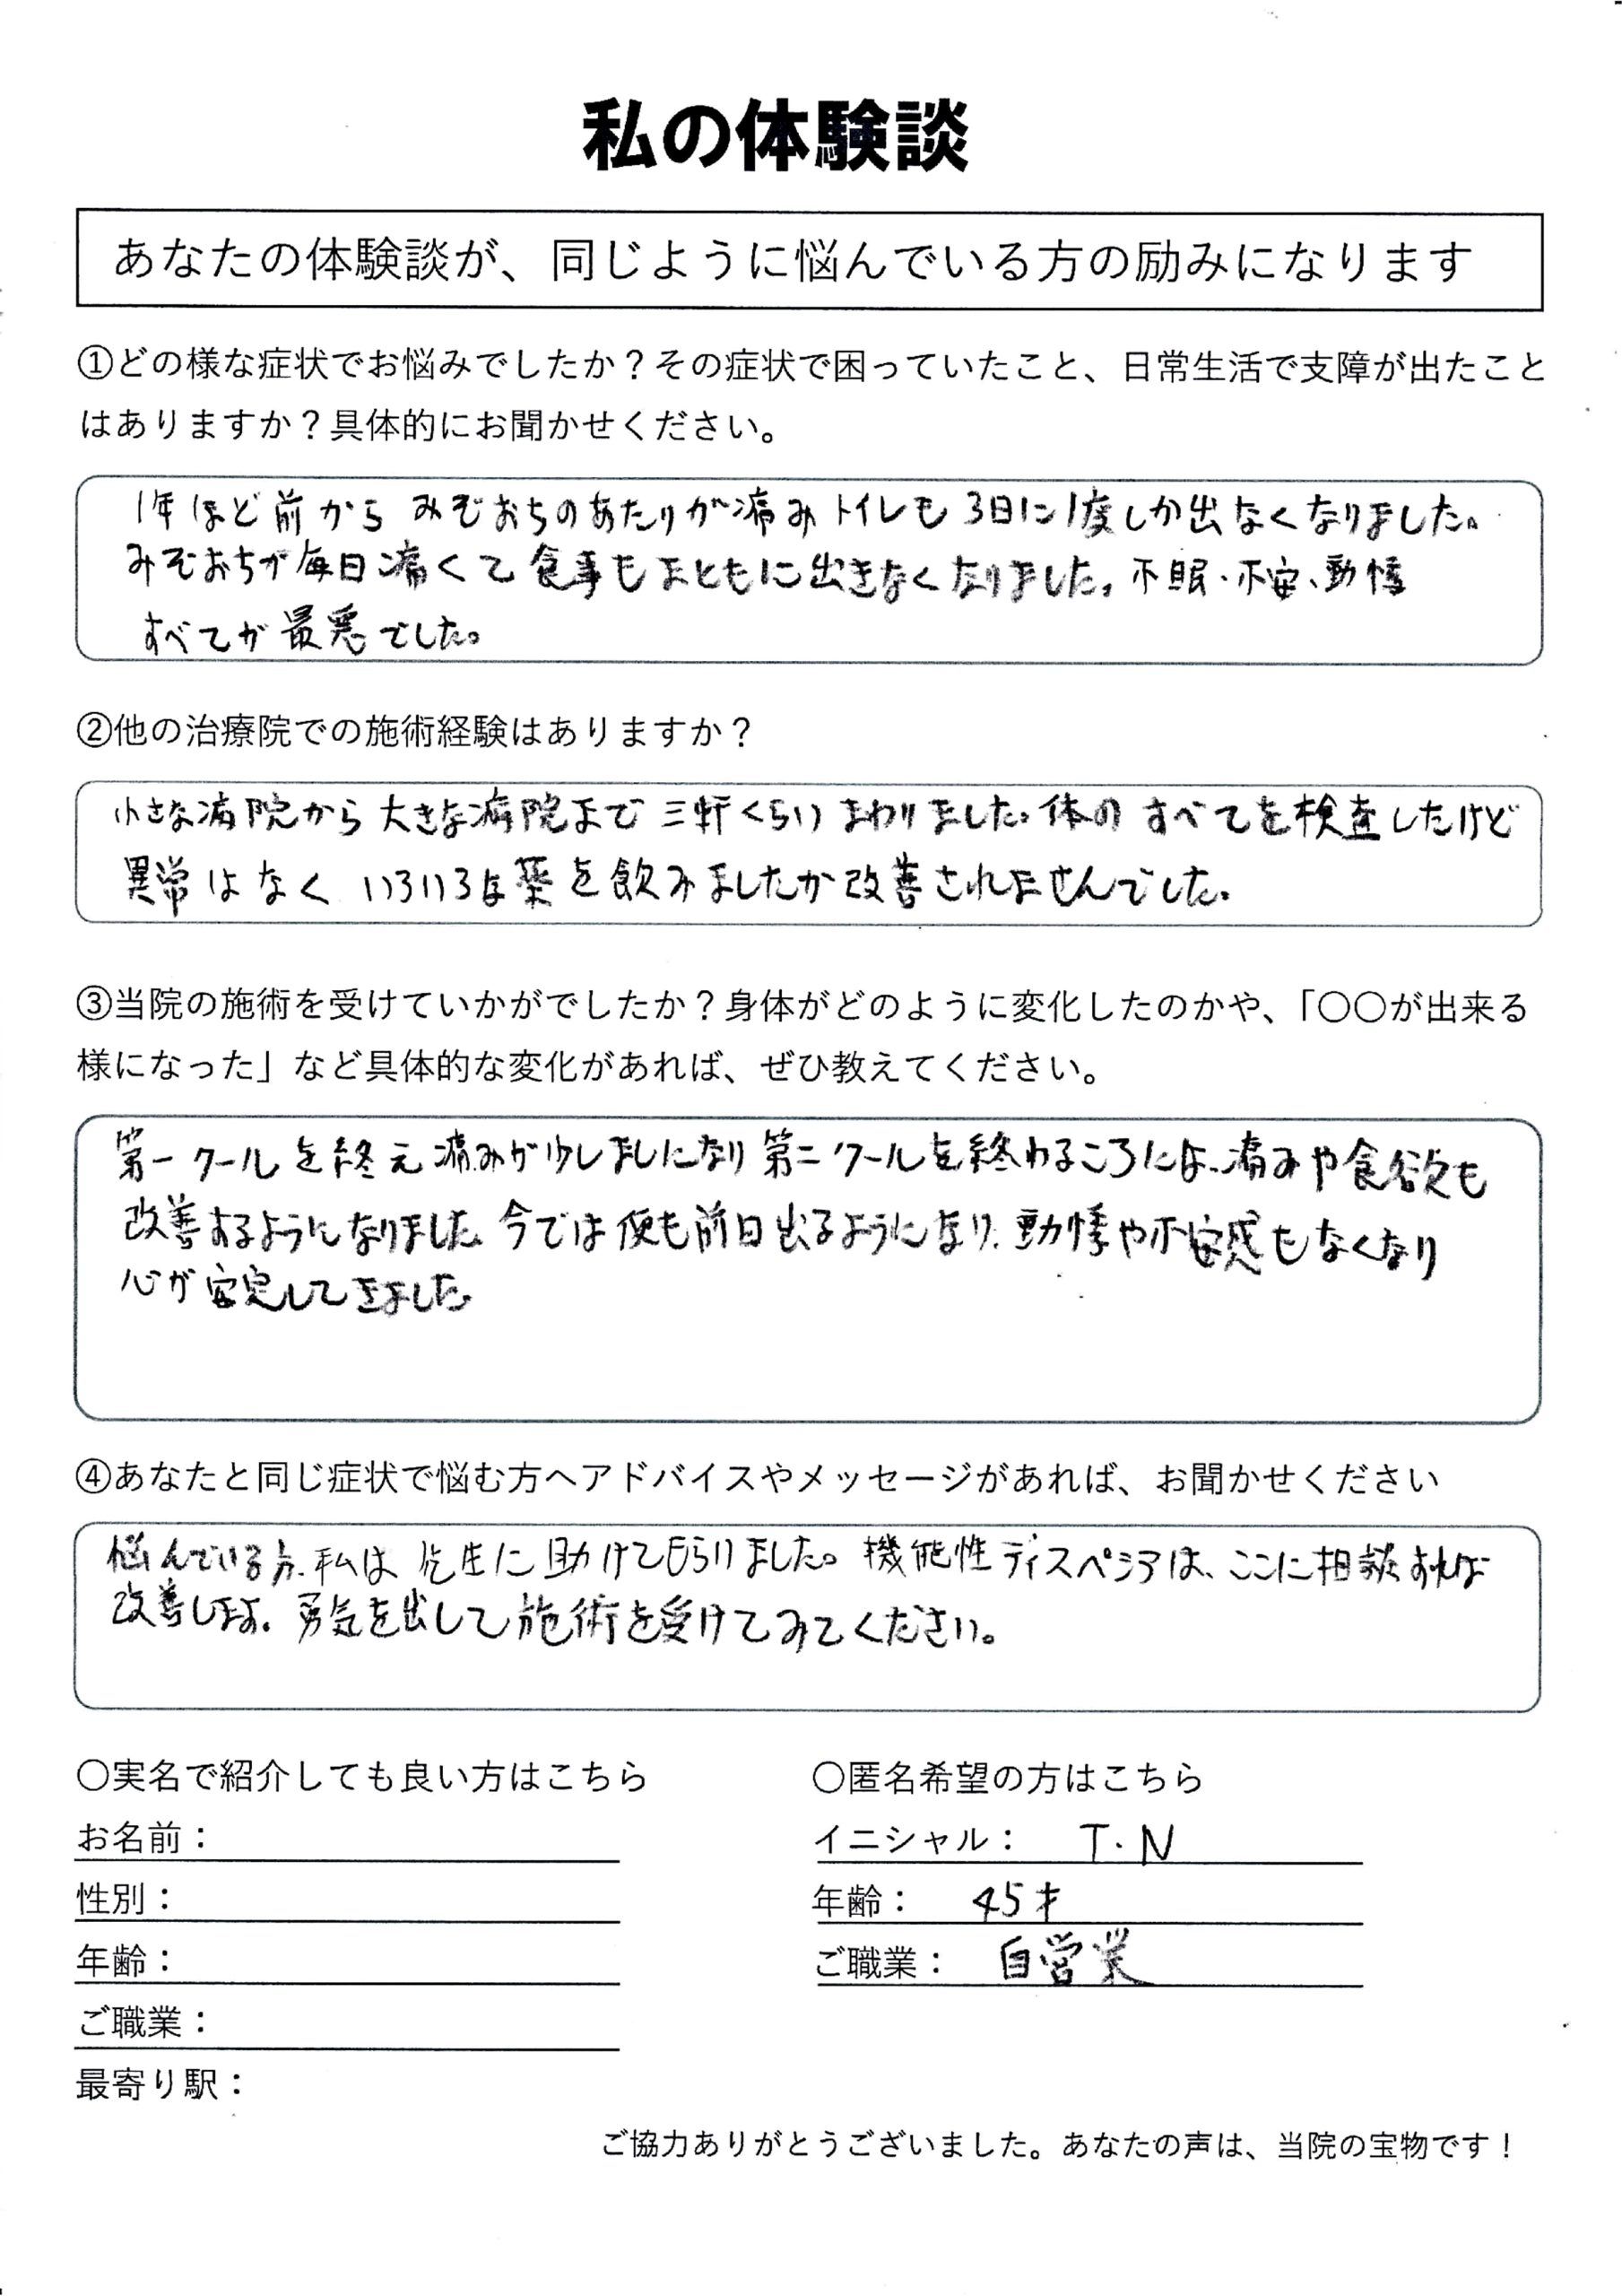 私の体験談
あなたの体験談が、同じように悩んでいる方の励みになります
①どの様な症状でお悩みでしたか？その症状で困っていたこと、日常生活で支障が出たこと
はありますか？具体的にお聞かせください。
1年ほど前から みぞおちのあたりが痛み トイレも 3日に1度しか出なくなりました。
みぞおちが毎日痛くて 食事もまともに出きなくなりました。不眠・不安、動悸
すべてが 最悪でした。
②他の治療院での施術経験はありますか？
小さな病院から 大きな病院まで 三軒くらい まわりました。体の すべてを検査したけど
異常はなく いろいろな薬を飲みましたか改善されませんでした。
③当院の施術を受けていかがでしたか？身体がどのように変化したのかや、「〇〇が出来る
様になった」など具体的な変化があれば、ぜひ教えてください。
第一クールを終え 痛みが少しましになり 第二クールを終わるころには、痛みや食欲も
改善するようになりました。今では便も前日出るようになり、動悸や不安感もなくなり
心が安定してきました
④あなたと同じ症状で悩む方へアドバイスやメッセージがあれば、お聞かせください
悩んでいる方、私は 先生に 助けてもらいました。機能性ディスペシアは、ここに相談すれば
改善します。勇気を出して施術を受けてみてください。
〇実名で紹介しても良い方はこちら
お名前：
性別：
年齢：
ご職業：
最寄り駅：
〇匿名希望の方はこちら
イニシャル： T・N
年齢： 45才
ご職業： 自営業
ご協力ありがとうございました。あなたの声は、当院の宝物です！